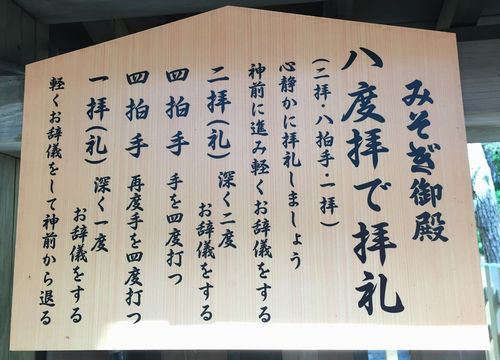 みそぎ御殿
八度拝で拝礼
(二拝・八拍手・一拝)
心静かに拝礼しましょう
神前に進み軽くお辞儀をする
二拝(礼) 深く二度
お辞儀をする
四拍手 手を四度打つ
四拍手 再度手を四度打つ
一拝(礼) 深く一度
お辞儀をする
軽くお辞儀をして神前から退る